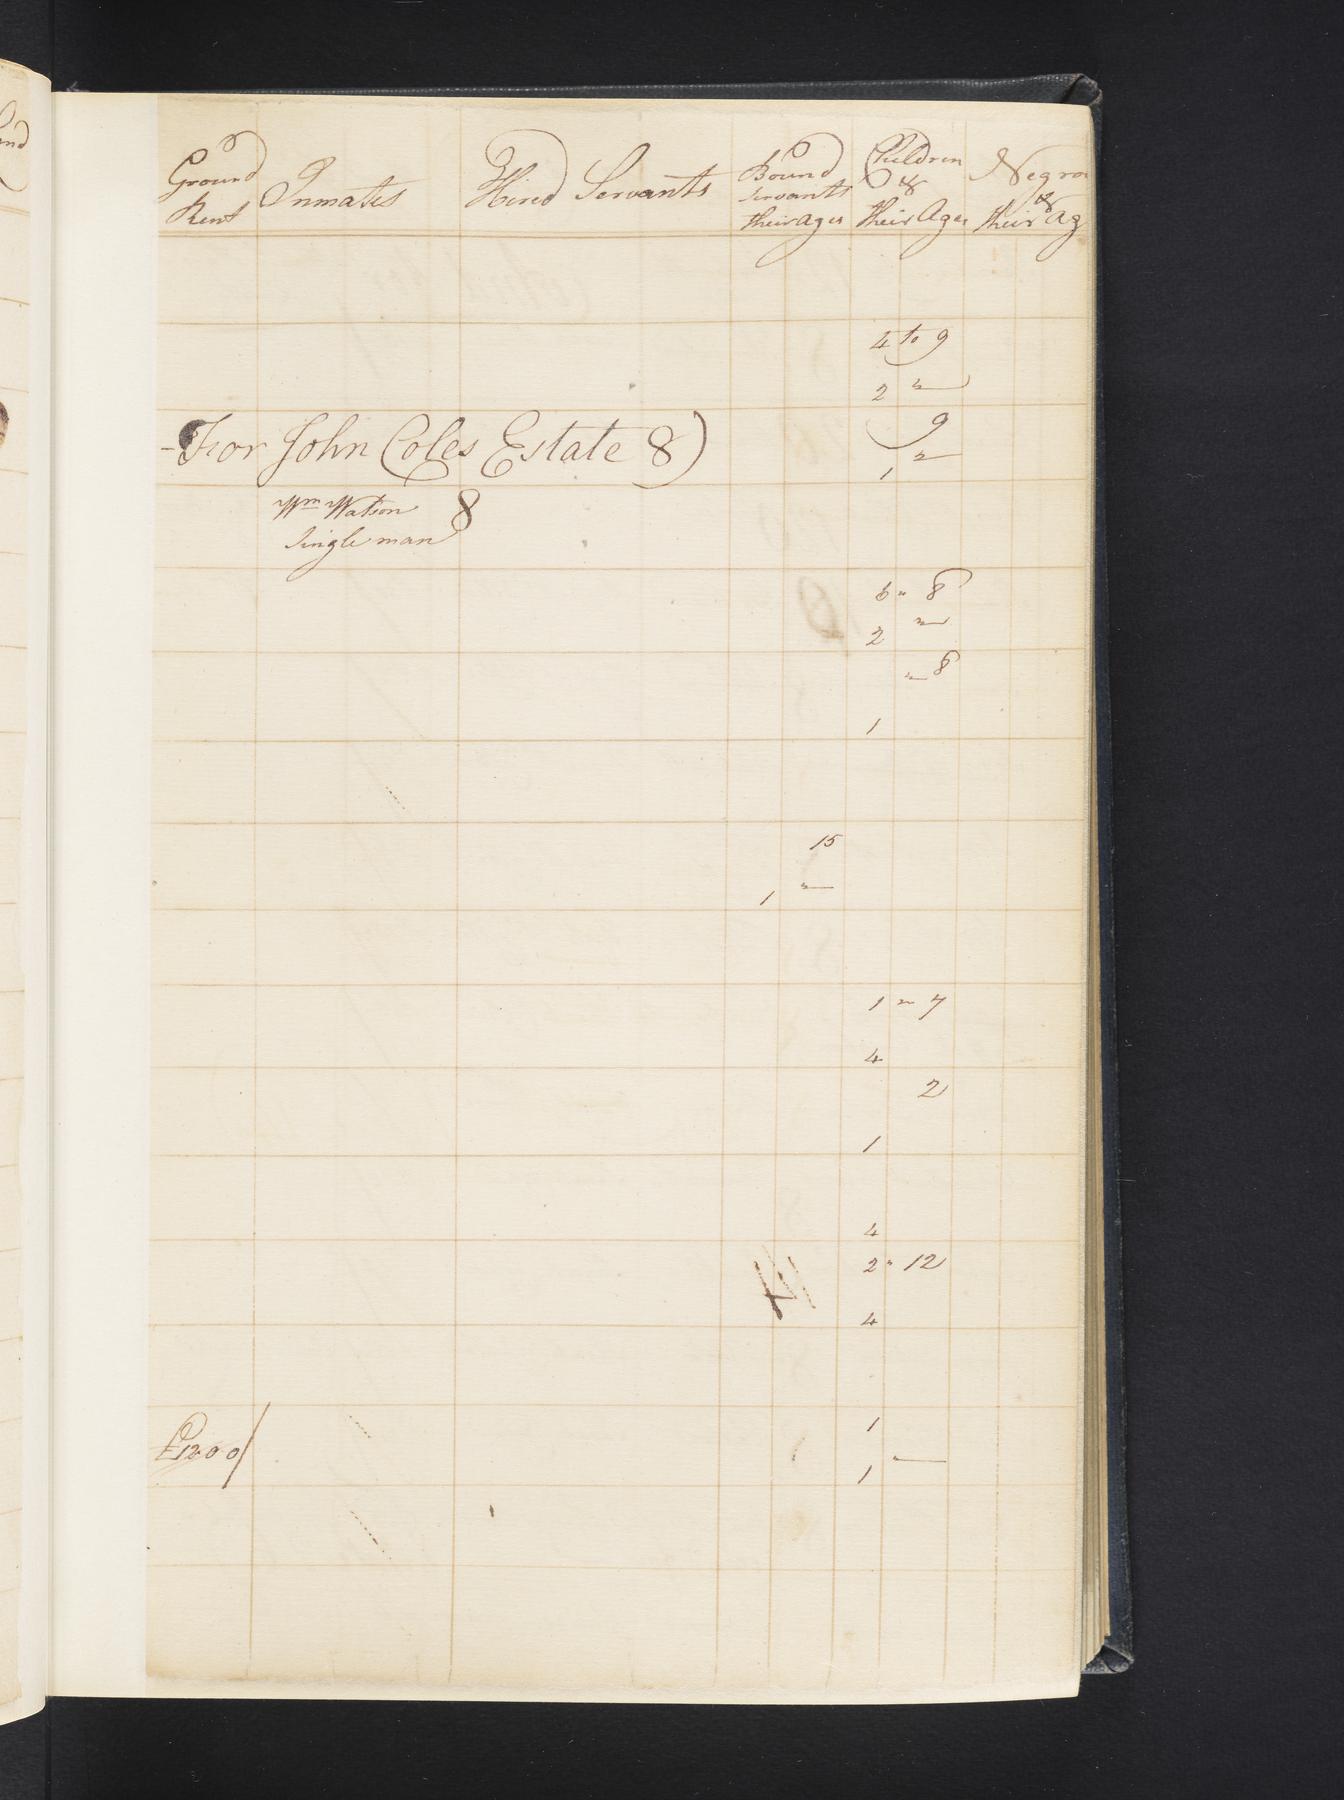 Ground
Rent
Inmates
Hired Servants
Bound
servants
their ages
Children
&
their Ages
Negro
&
their Ag
4 to 9
2 "
For John Coles Estate 8)
9
1 "
Wm Watson 8
Single man
6 " 8
2 "
" 8
1
15
1 "
1 " 7
4
2
1
4
2 " 12
4
1
£1200/
1